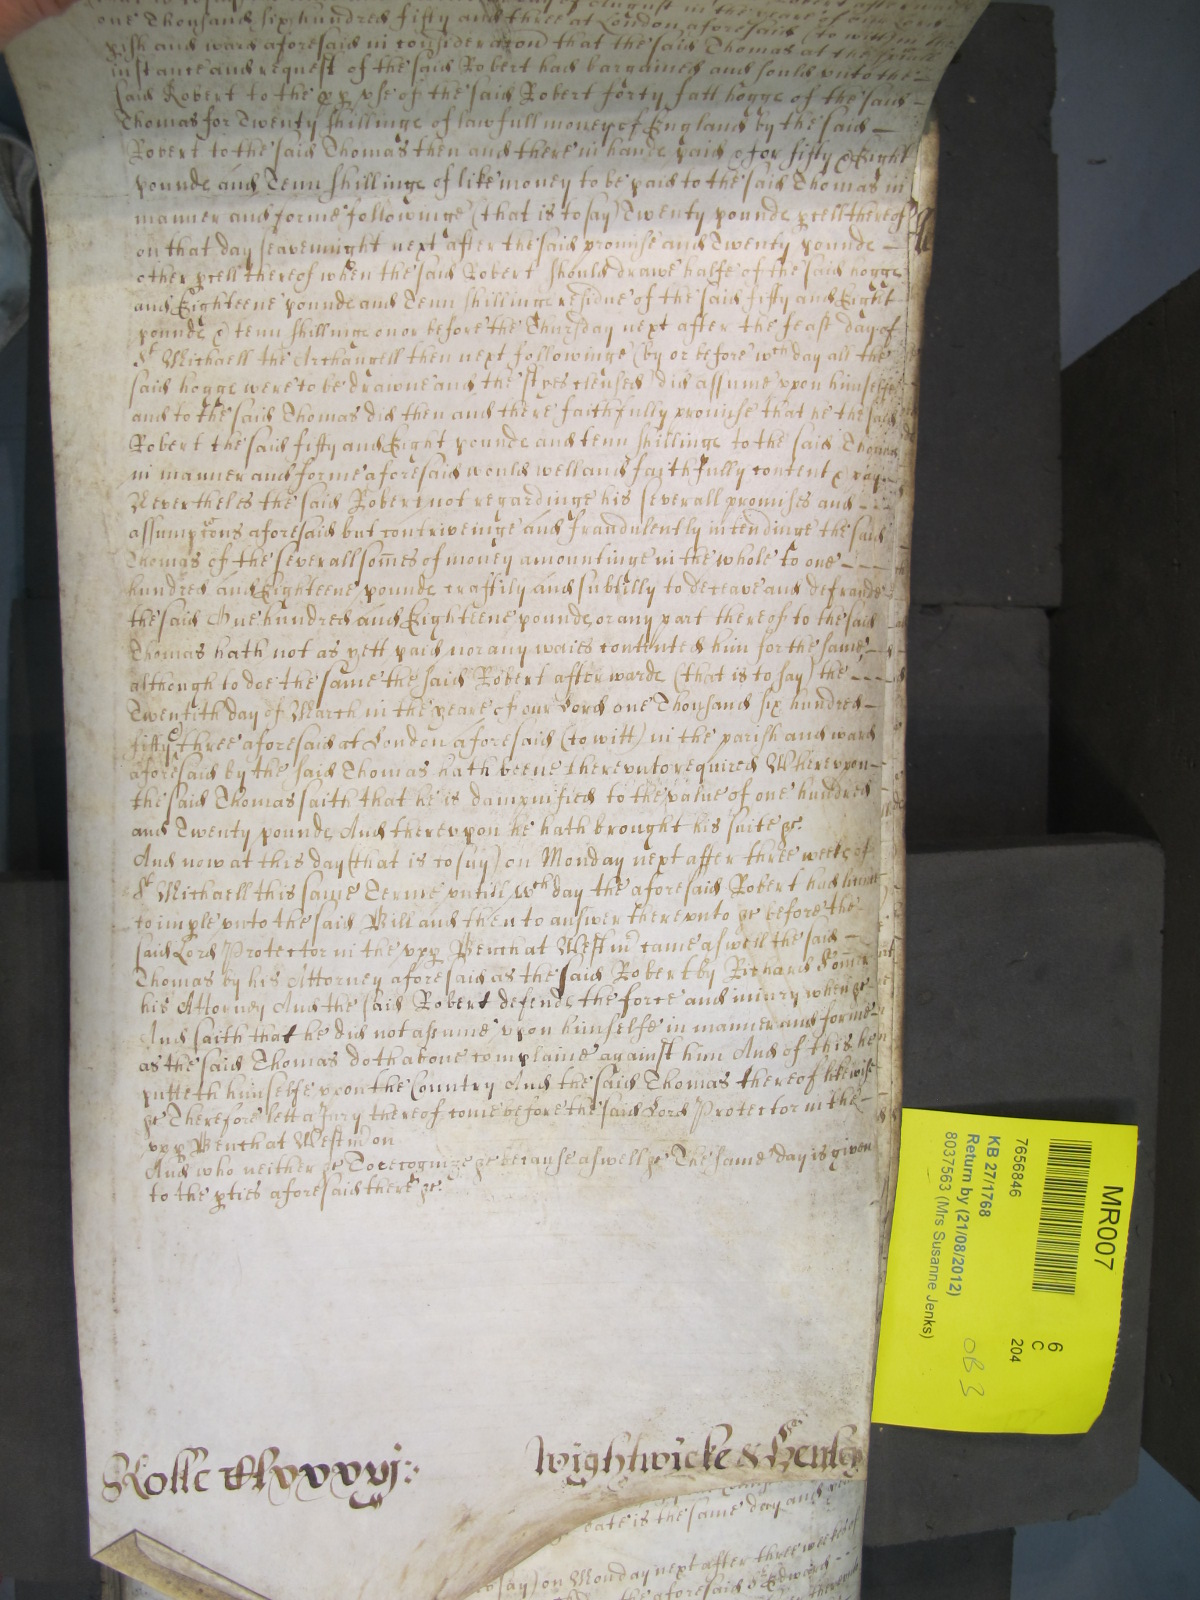 day of August in the yeare of our Lord
one Thousand six hundred fifty and three at London aforesaid (to witt) in the
pish and ward aforesaid in consideracon that the said Thomas at the speciall
instance and request of the said Robert had bargained and sould vnto the
said Robert to the pp vse of the said Robert forty fatt hogge of the said
Thomas for Twenty shillinge of lawfull money of England by the said
Robert to the said Thomas then and there in hande paid & for fifty & Eight
pounde and Tenn shillinge of like money to be paid to the said Thomas in
manner and forme followinge (that is to say) Twenty pounde pcell thereof
on that day seavennight next after the said promise and Twenty pounde
other pcell thereof when the said Robert should drawe halfe of the said hogge
and Eighteene pounde and Tenn shillinge residue of the said fifty and Eight
pounde & tenn shillinge on or before the Thursday next after the feast day of
St Michaell the Archangell then next followinge (by or before wch day all the
said hogge were to be drawne and the styes clensed) did assume vpon himselfe
and to the said Thomas did then and there faithfully promise that he the said
Robert the said fifty and Eight pounde and tenn shillinge to the said Thomas
in manner and forme aforesaid would well and faithfully content & pay
Neverthelesthe said Robert not regardinge his severall promises and
assumptons aforesaid but contriveinge and fraudulently intendinge the said
Thomas of the severall somes of money amountinge in the whole to one
hundred and Eighteene pounde craftily and subtilly to deceave and defraude
the said One hundred and Eighteene pounde, or any part thereof to the said
Thomas hath not as yett paid nor any waies contented him for the same
although to doe the same the said Robert afterwarde (that is to say) the
Twentith day of March in the yeare of our Lord one Thousand six hundred
fifty & three aforesaid at London aforesaid (to witt) in the parish and ward
aforesaid by the said Thomas hath beene therevnto required Wherevpon
the said Thomas saith that he is dampnified to the value of one hundred
and Twenty pounde, And therevpon he hath brought his suite &c.
And now at this day (that is to say) on Monday next after three weeke of
St Michaell this same Terme vntill wch day the aforesaid Robert had
to imple vnto the said Bill and then to answer therevnto &c before the
said Lord Protector in the vpp Bench at Westm came aswell the said
Thomas by his Attorney aforesaid as the said Robert by Richard
his Attorney And the said Robert defende the force and iniury when &c
And saith that he did not assume vpon himselfe in manner and forme
as the said Thomas doth above complaine against him And of this hee
putteth himselfe vpon the Country And the said Thomas thereof likewise
&c Therefore lett a Jury thereof come before the said Lord Protector in the
vpp Bench at Westm on
And who neither &c To recognize &c because aswell &c The same day is given
to the pties aforesaid there &c.
Rolle
Wightwicke & Henley
eate is the same day and
say) on Monday next after three weeke of
the aforesaid Edward
MR007
6
C
204
7656846
KB 27/1768
Return by (21/08/2012)
8037563 (Mrs Susanne Jenks)
OB 3